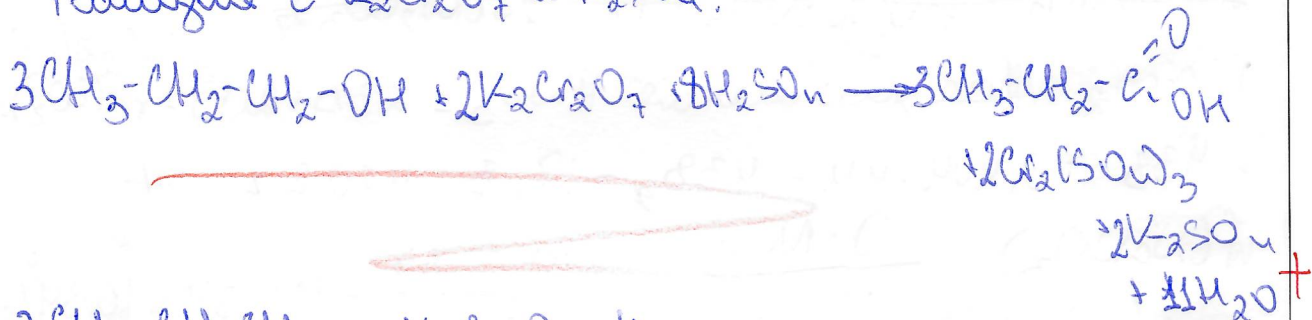 с K₂Cr₂O₇
3CH₃-CH₂-CH₂-OH + 2K₂Cr₂O₇ + 8H₂SO₄ → 3CH₃-CH₂-C(=O)OH
+ 2Cr₂(SO₄)₃
+ 2K₂SO₄
+ 11H₂O
+